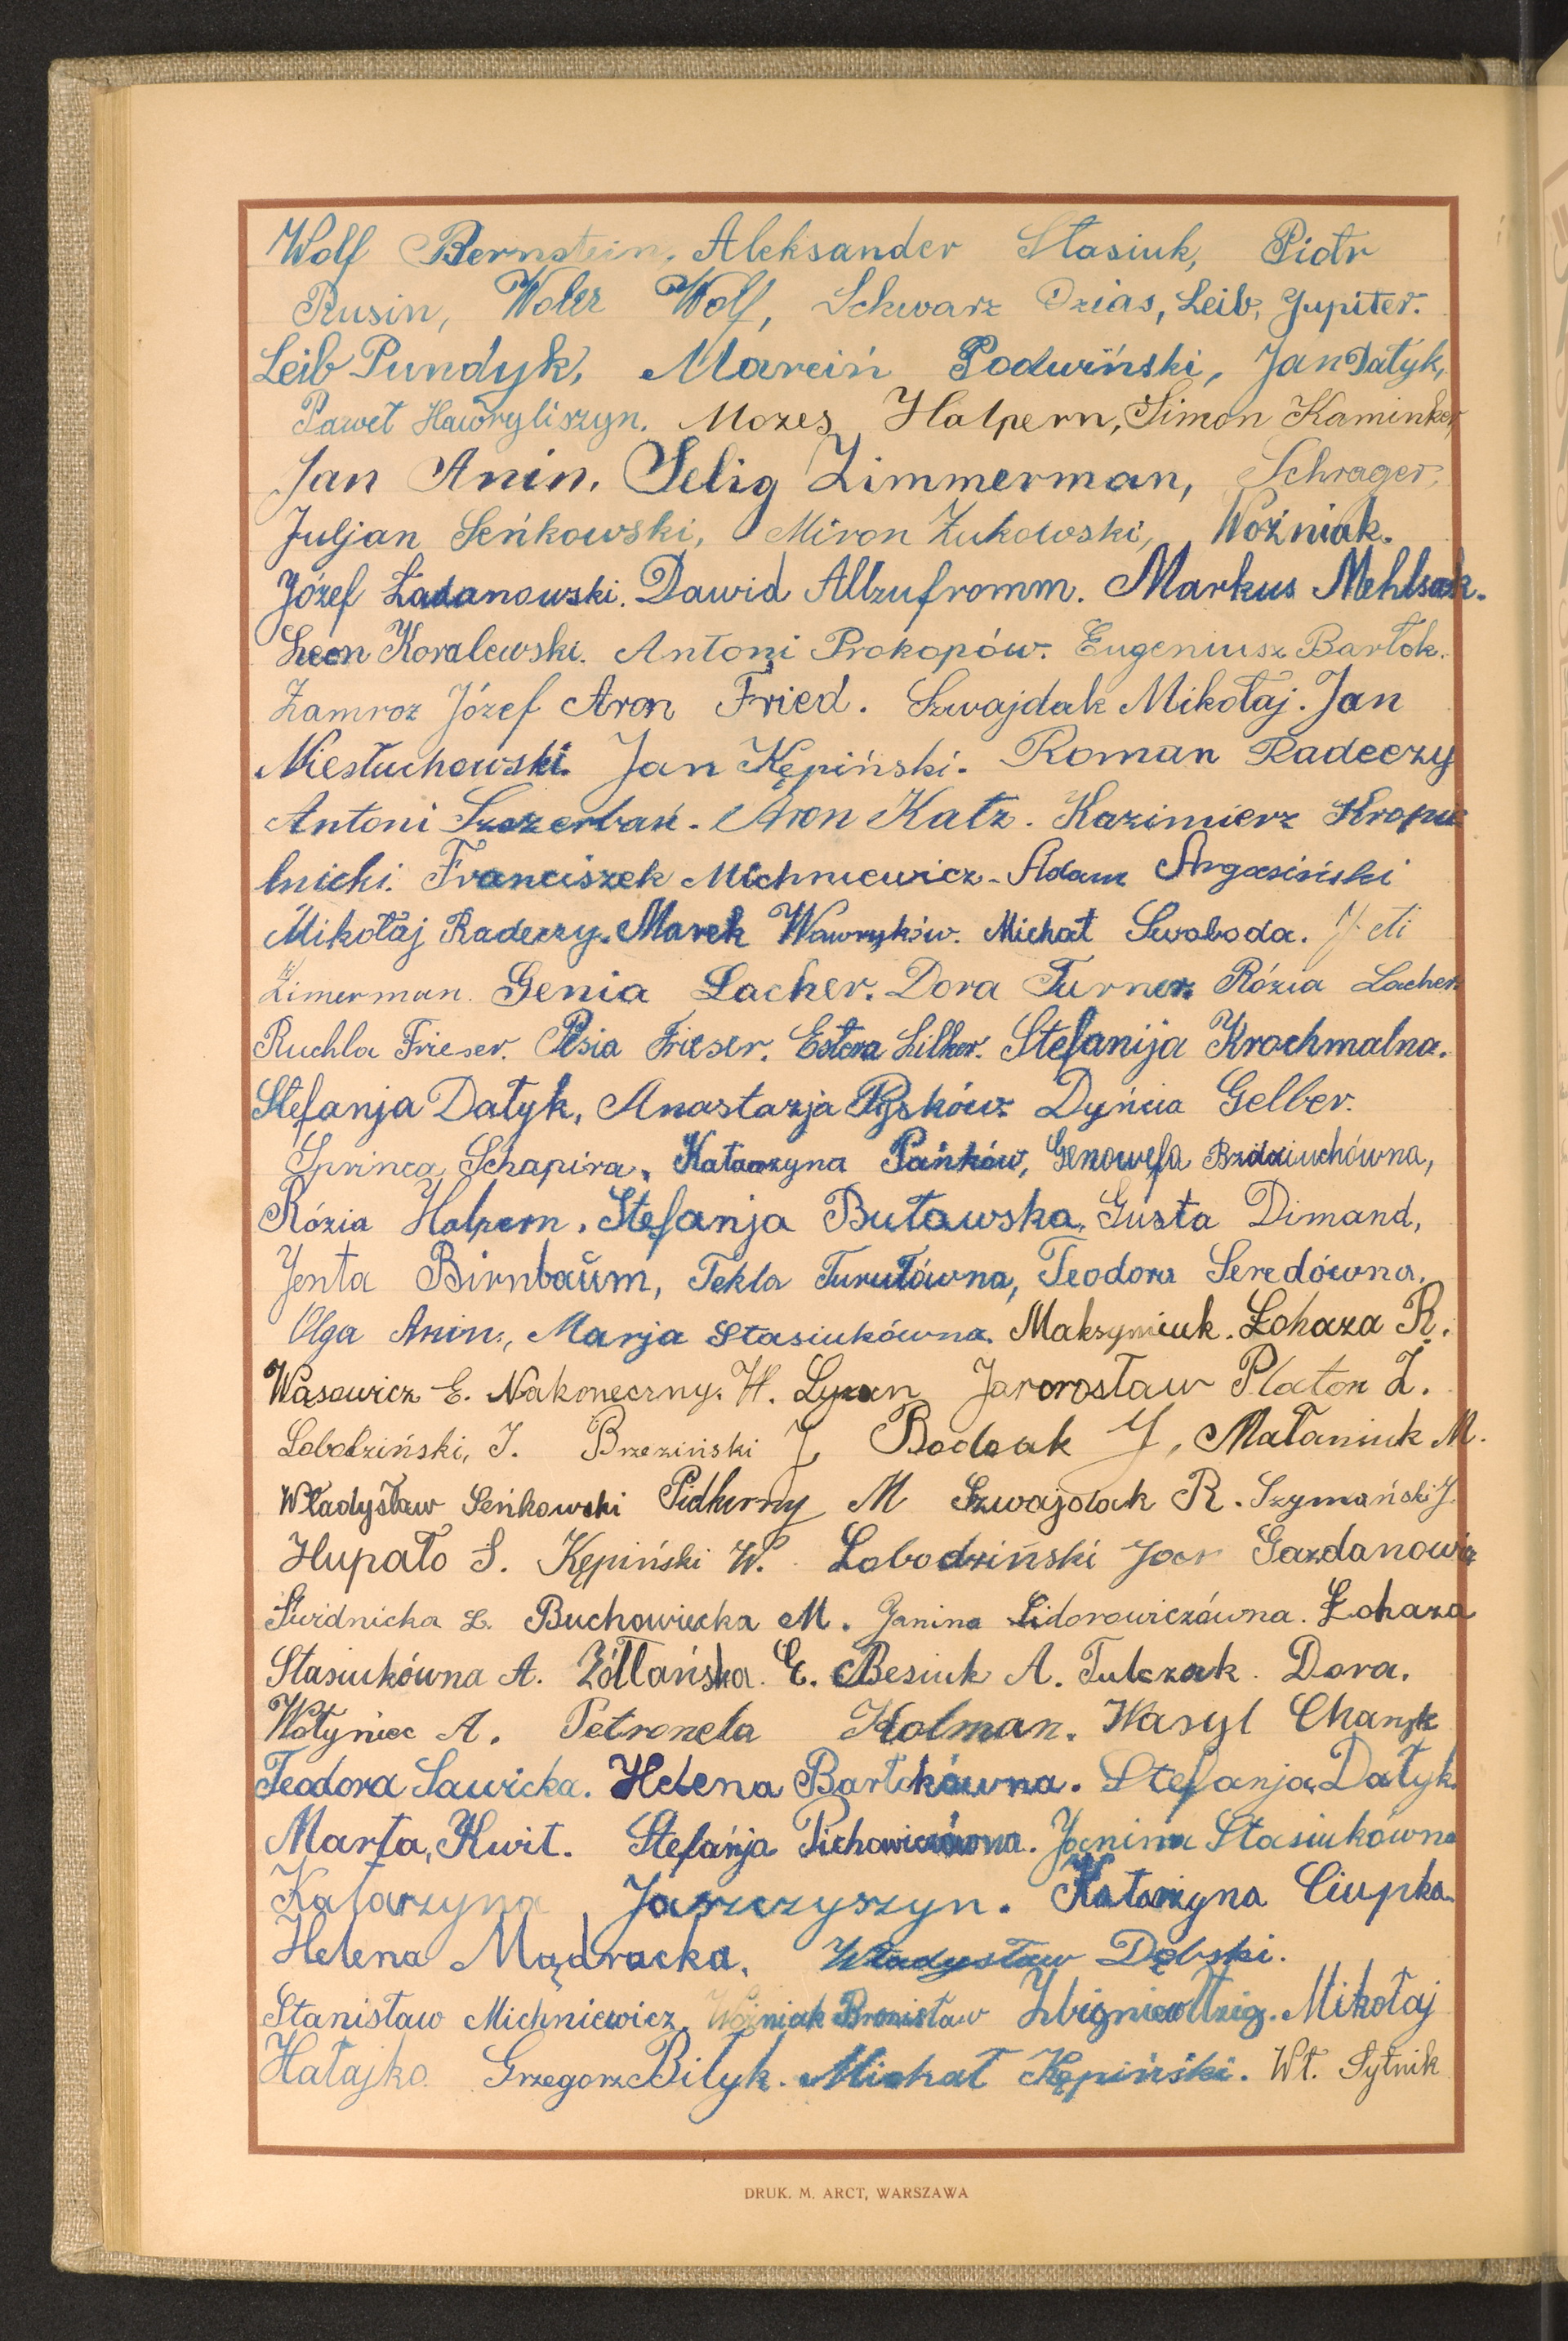 Wolf Bernstein, Aleksander Stasiuk, Piotr
Rusin, Woler Wolf, Schwarz Ozias, Leib, Jupiter.
Leib Pundyk, Marciń Podwiński, Jan Datyk,
Paweł Hawryliszyn. Mozes Halpern, Simon Kaminker,
Jan Anin. Selig Zimmerman, Schrager,
Juljan Seńkowski, Miron Żukowski, Woźniak.
Józef Ładanowski. Dawid Allzufromm. Markus Mehlsak.
Leon Kovalewski. Antoni Prokopów. Eugeniusz Bartok.
Zamroz Józef Aron Fried. Szwajdak Mikołaj. Jan
Niesłuchowski. Jan Kępiński. Roman Radeczy
Antoni Szczerbań. Aron Katz. Kazimierz Kropi
lnicki. Franciszek Michniewicz. Adam Argasiński
Mikołaj Radeczy. Marek Wawryków. Michał Swoboda. Jeti
Zimerman. Genia Lacher. Dora Turner. Rózia Lacher.
Ruchla Frieser. Pesia Frieser. Estera Silber. Stefanija Krochmalna.
Stefanja Datyk, Anastazja Pysków. Dyńcia Gelber.
Sprinca Schapira, Katarzyna Pańków, Genowefa Bzdziuchówna,
Rózia Halpern, Stefanja Buławska, Gusta Dimand,
Jenta Birnbaŭm, Tekla Turułówna, Teodora Seredówna,
Olga Anin, Marja Stasiukówna. Maksymiuk. Łohaza R.
Wąsowicz E. Nakoneczny. H. Lyzen Jarorosław Platon Z.
Lobodziński, I. Brzeziński J, Bodnak J, Mataniuk M.
Władysław Seńkowski Pidhirny M Szwajdak R. Szymański J.
Hupało S. Kępiński W. Łobodziński Joer Gazdanowicz
Świdnicka L. Buchowiecka M. Janina Sidorowiczówna. Łohaza
Stasiukówna A. Żółtańska. E. Besiuk A. Tulczak. Dora.
Wołyniec A. Petronela Holman. Wasyl Chanyk
Teodora Sawicka. Helena Bartkówna. Stefanja Datyk.
Marta, Kwit. Stefańja Pichowiczówna. Janina Stasiukówna
Katarzyna Jaszczyszyn. Katarzyna Ciupka.
Helena Mądracka, Władysław Dębski.
Stanisław Michniewicz, Woźniak Bronisław Zbigniew Mikołaj
Hałajko. Grzegorz Bilyk. Michał Kępiński. Wł. Sytnik
DRUK. M. ARCT, WARSZAWA